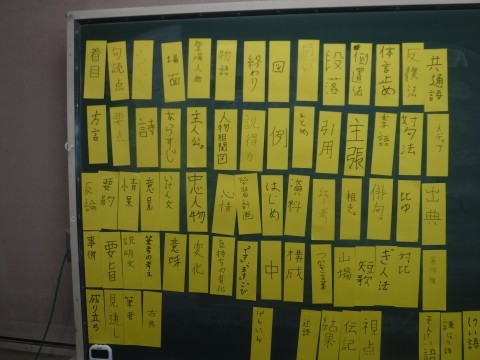 着目
句読点
場面
登場人物
物語
終わり
図
問い
段落
倒置法
体言止め
反復法
共通語
方言
要点
詩
あらすじ
主人公
人物相関図
説得力
例
まとめ
引用
主張
季語
対句法
反論
要約
情景
意見
中心人物
心情
はじめ
資料
俳句
比ゆ
出典
事例
要旨
説明文
筆者の考え
意味
変化
気持ちの変化
中
構成
山場
短歌
ぎ人法
対比
成り立ち
見通し
筆者
古典
結果
伝記
視点